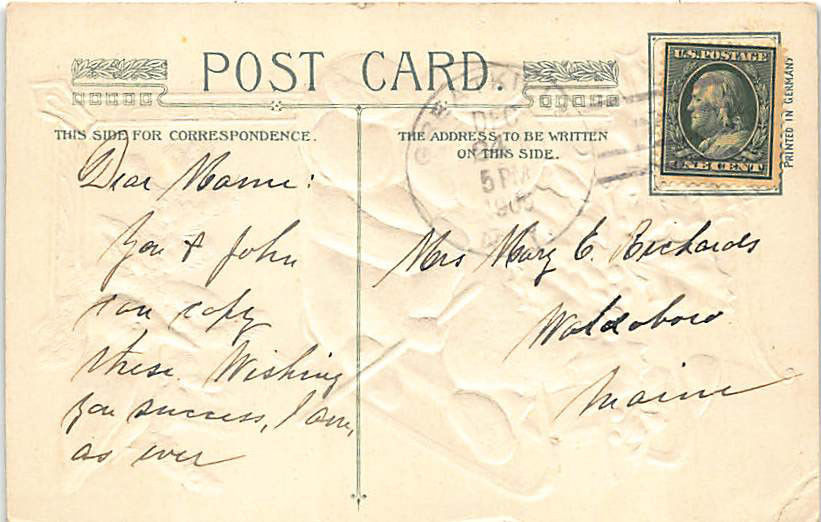 POST CARD.
THIS SIDE FOR CORRESPONDENCE.
THE ADDRESS TO BE WRITTEN
ON THIS SIDE.
U.S. POSTAGE
ONE CENT
PRINTED IN GERMANY
DEC
24
5 PM
Dear Mamie:
You & John
can copy
these. Wishing
you success, I am,
as ever
Mrs Mary E. Richards
Waldoboro
Maine